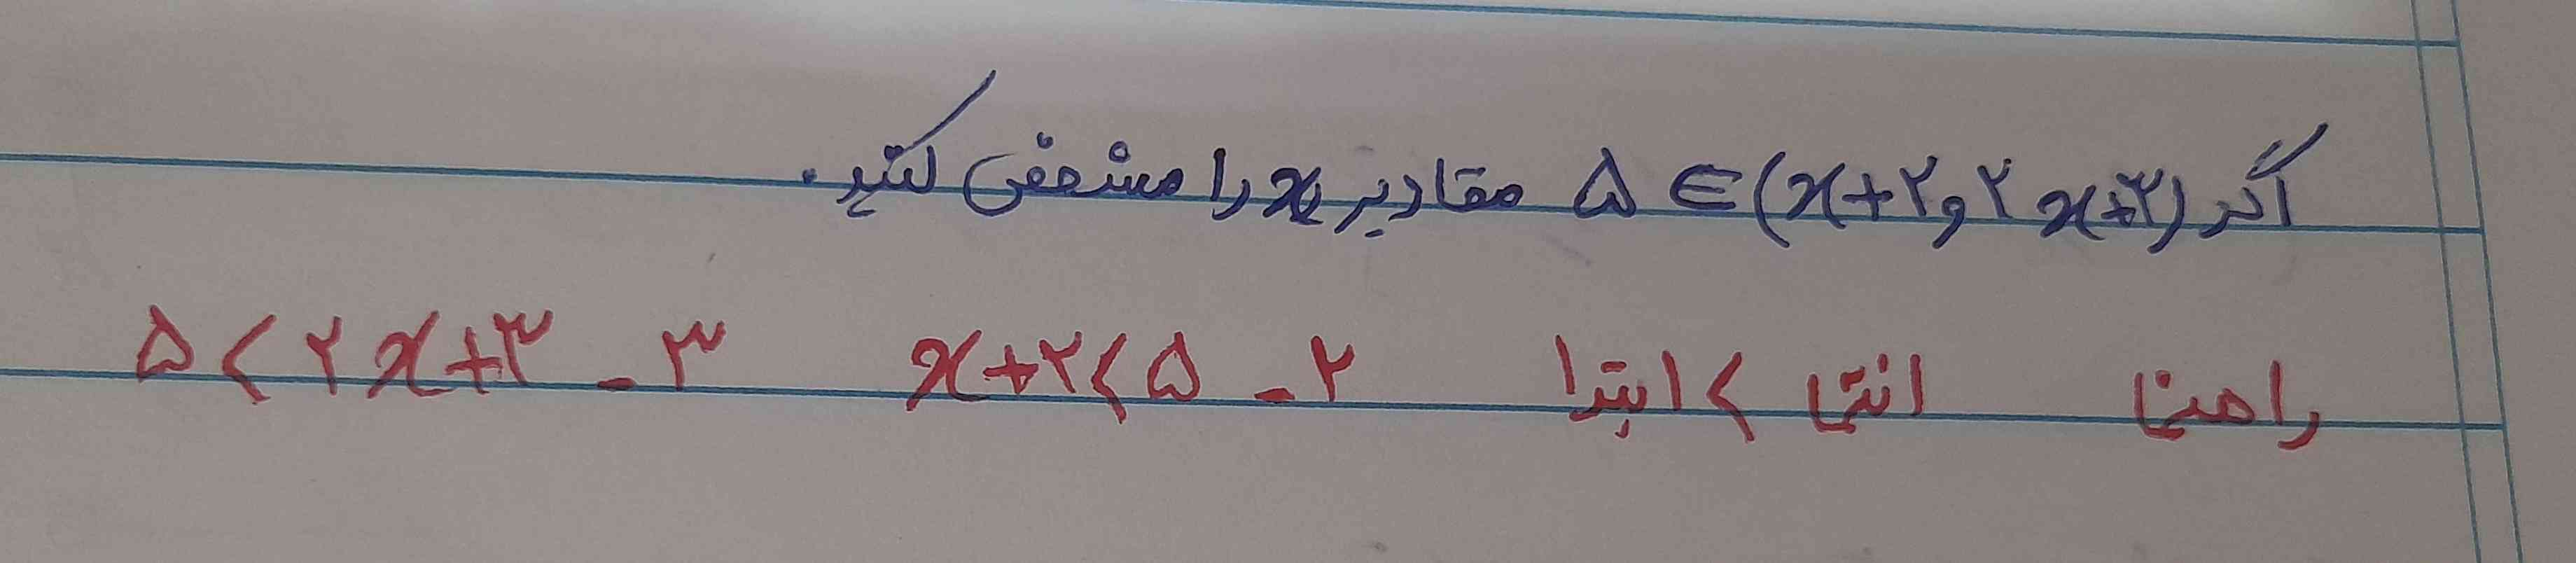 اگر ۵ ∈ (x+۲ و ۲x+۳) مقادیر x را مشخص کنید.
راهنما انتها > ابتدا x+۲<۵ _ ۲ ۵<۲x+۳ _ ۳